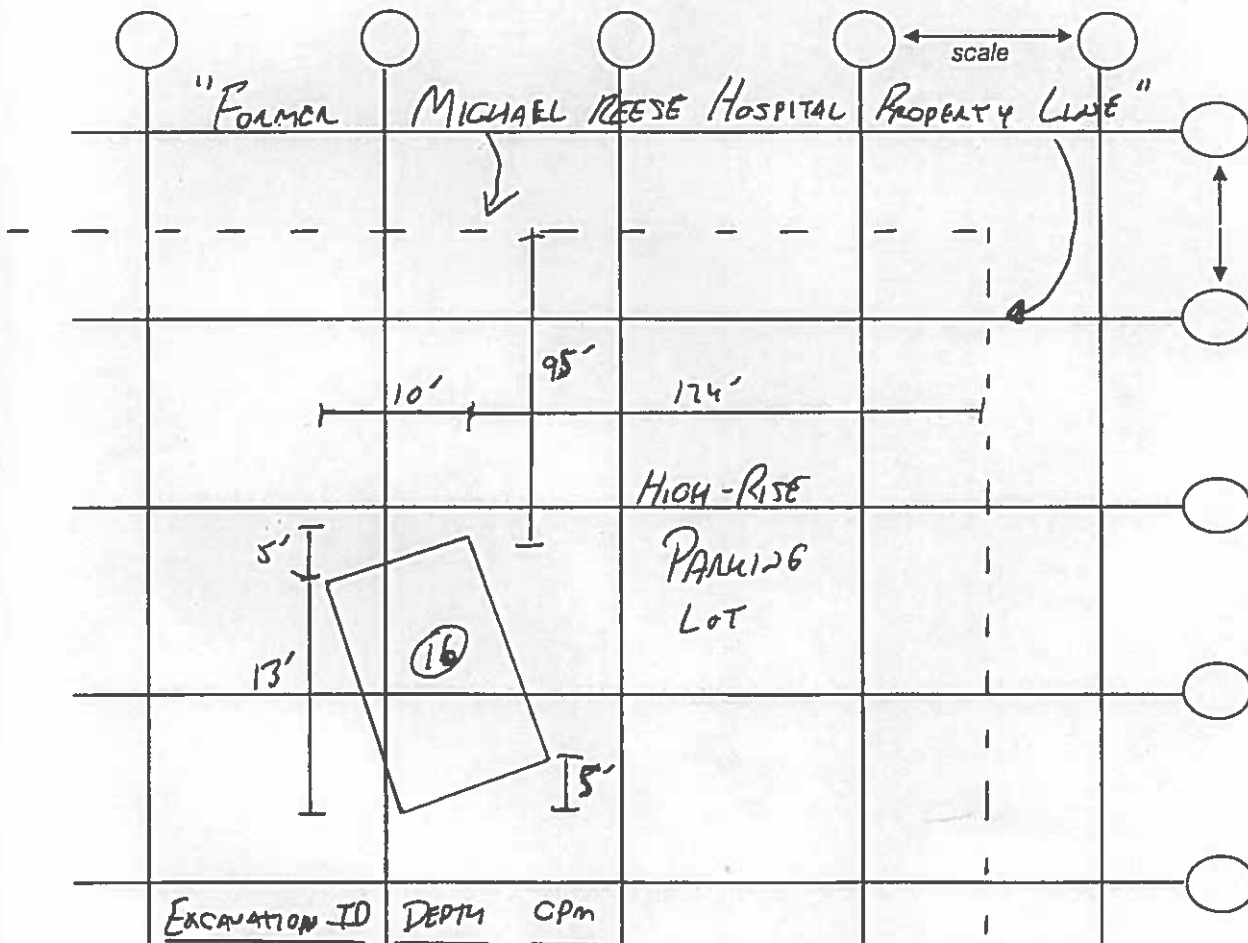 scale
"FORMER MICHAEL REESE HOSPITAL PROPERTY LINE"
95'
10'
124'
HIGH-RISE
PARKING
LOT
5'
16
13'
5'
EXCAVATION ID DEPTH CPM